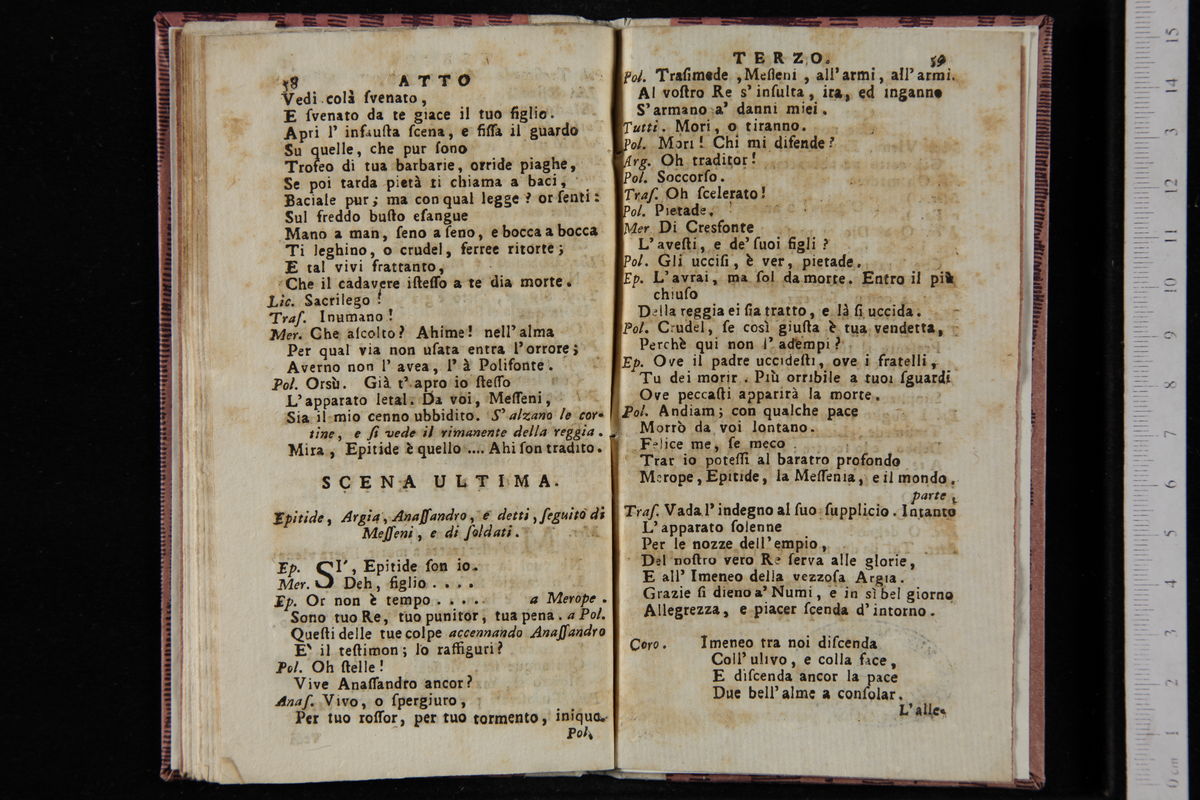 58 ATTO
Vedi colà ſvenato,
E ſvenato da te giace il tuo figlio.
Apri l' infauſta ſcena, e fiſſa il guardo
Su quelle, che pur ſono
Trofeo di tua barbarie, orride piaghe,
Se poi tarda pietà ti chiama a baci,
Baciale pur; ma con qual legge? or ſenti:
Sul freddo buſto eſangue
Mano a man, ſeno a ſeno, e bocca a bocca
Ti leghino, o crudel, ferree ritorte;
E tal vivi frattanto,
Che il cadavere iſteſſo a te dia morte.
Lic. Sacrilego!
Traſ. Inumano!
Mer. Che aſcolto? Ahime! nell'alma
Per qual via non uſata entra l'orrore;
Averno non l' avea, l' à Polifonte.
Pol. Orsù. Già t'apro io ſteſſo
L'apparato letal. Da voi, Meſſeni,
Sia il mio cenno ubbidito. S'alzano le cor-
tine, e ſi vede il rimanente della reggia.
Mira, Epitide è quello .... Ahi ſon tradito.
SCENA ULTIMA.
Epitide, Argia, Anaſſandro, e detti, ſeguito di
Meſſeni, e di ſoldati.
Ep. SI', Epitide ſon io.
Mer. Deh, figlio ....
Ep. Or non è tempo ..... a Merope.
Sono tuo Re, tuo punitor, tua pena. a Pol.
Queſti delle tue colpe accennando Anaſſandro
E' il teſtimon; lo raffiguri?
Pol. Oh ſtelle!
Vive Anaſſandro ancor?
Anaſ. Vivo, o ſpergiuro,
Per tuo roſſor, per tuo tormento, iniquo.
Pol.
TERZO. 59
Pol. Traſimede, Meſſeni, all'armi, all'armi.
Al voſtro Re s'inſulta, ira, ed inganno
S'armano a' danni miei.
Tutti. Mori, o tiranno.
Pol. Mori! Chi mi difende?
Arg. Oh traditor!
Pol. Soccorſo.
Traſ. Oh ſcelerato!
Pol. Pietade.
Mer Di Cresfonte
L'aveſti, e de' ſuoi figli?
Pol. Gli ucciſi, è ver, pietade.
Ep. L'avrai, ma ſol da morte. Entro il più
chiuſo
Della reggia ei ſia tratto, e là ſi uccida.
Pol. Crudel, ſe così giuſta è tua vendetta,
Perchè qui non l' adempi?
Ep. Ove il padre uccideſti, ove i fratelli,
Tu dei morir. Più orribile a tuoi ſguardi
Ove peccaſti apparirà la morte.
Pol. Andiam; con qualche pace
Morrò da voi lontano.
Felice me, ſe meco
Trar io poteſſi al baratro profondo
Merope, Epitide, la Meſſenia, e il mondo.
parte.
Traſ. Vada l'indegno al ſuo ſupplicio. Intanto
L'apparato ſolenne
Per le nozze dell'empio,
Del noſtro vero Re ſerva alle glorie,
E all' Imeneo della vezzoſa Argia.
Grazie ſi dieno a' Numi, e in sì bel giorno
Allegrezza, e piacer ſcenda d'intorno.
Coro. Imeneo tra noi diſcenda
Coll'ulivo, e colla face,
E diſcenda ancor la pace
Due bell'alme a conſolar.
L'alle-
15
14
13
12
11
10
9
8
7
6
5
4
3
2
1
0 cm